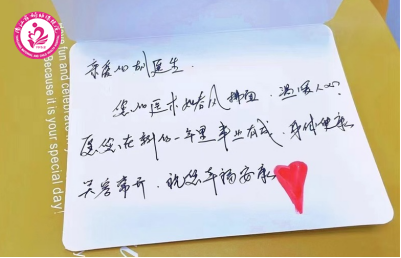 亲爱的刘医生.
您的医术如春风拂面.温暖人心?
愿您在新的一年里事业有成.身体健康
笑容常开.祝您幸福安康
fun and celebrate
Because it is your special day!